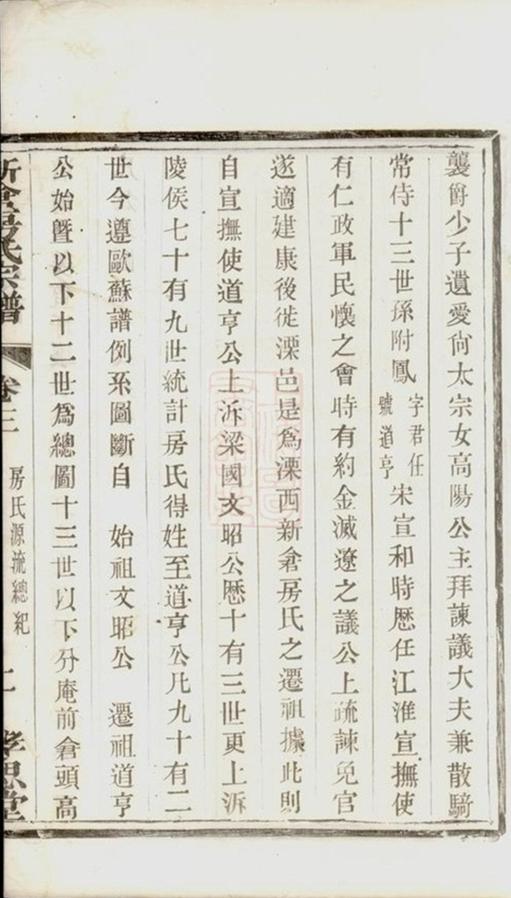 襲爵少子遺愛尙太宗女高陽公主拜諫議大夫兼散騎
常侍十三世孫附鳳字君任號道亨宋宣和時歷任江淮宣撫使
有仁政軍民懷之會時有約金滅遼之議公上疏諫免官
遂適建康後徙溧邑是爲溧西新倉房氏之遷祖據此則
自宣撫使道亨公上泝梁國文昭公歷十有三世更上泝
陵侯七十有九世統計房氏得姓至道亨公凡九十有二
世今遵歐蘇譜例系圖斷自 始祖文昭公 遷祖道亨
公始曁以下十二世爲總圖十三世以下分庵前倉頭高
新倉房氏宗譜 卷三 房氏源流總紀 二 孝思堂